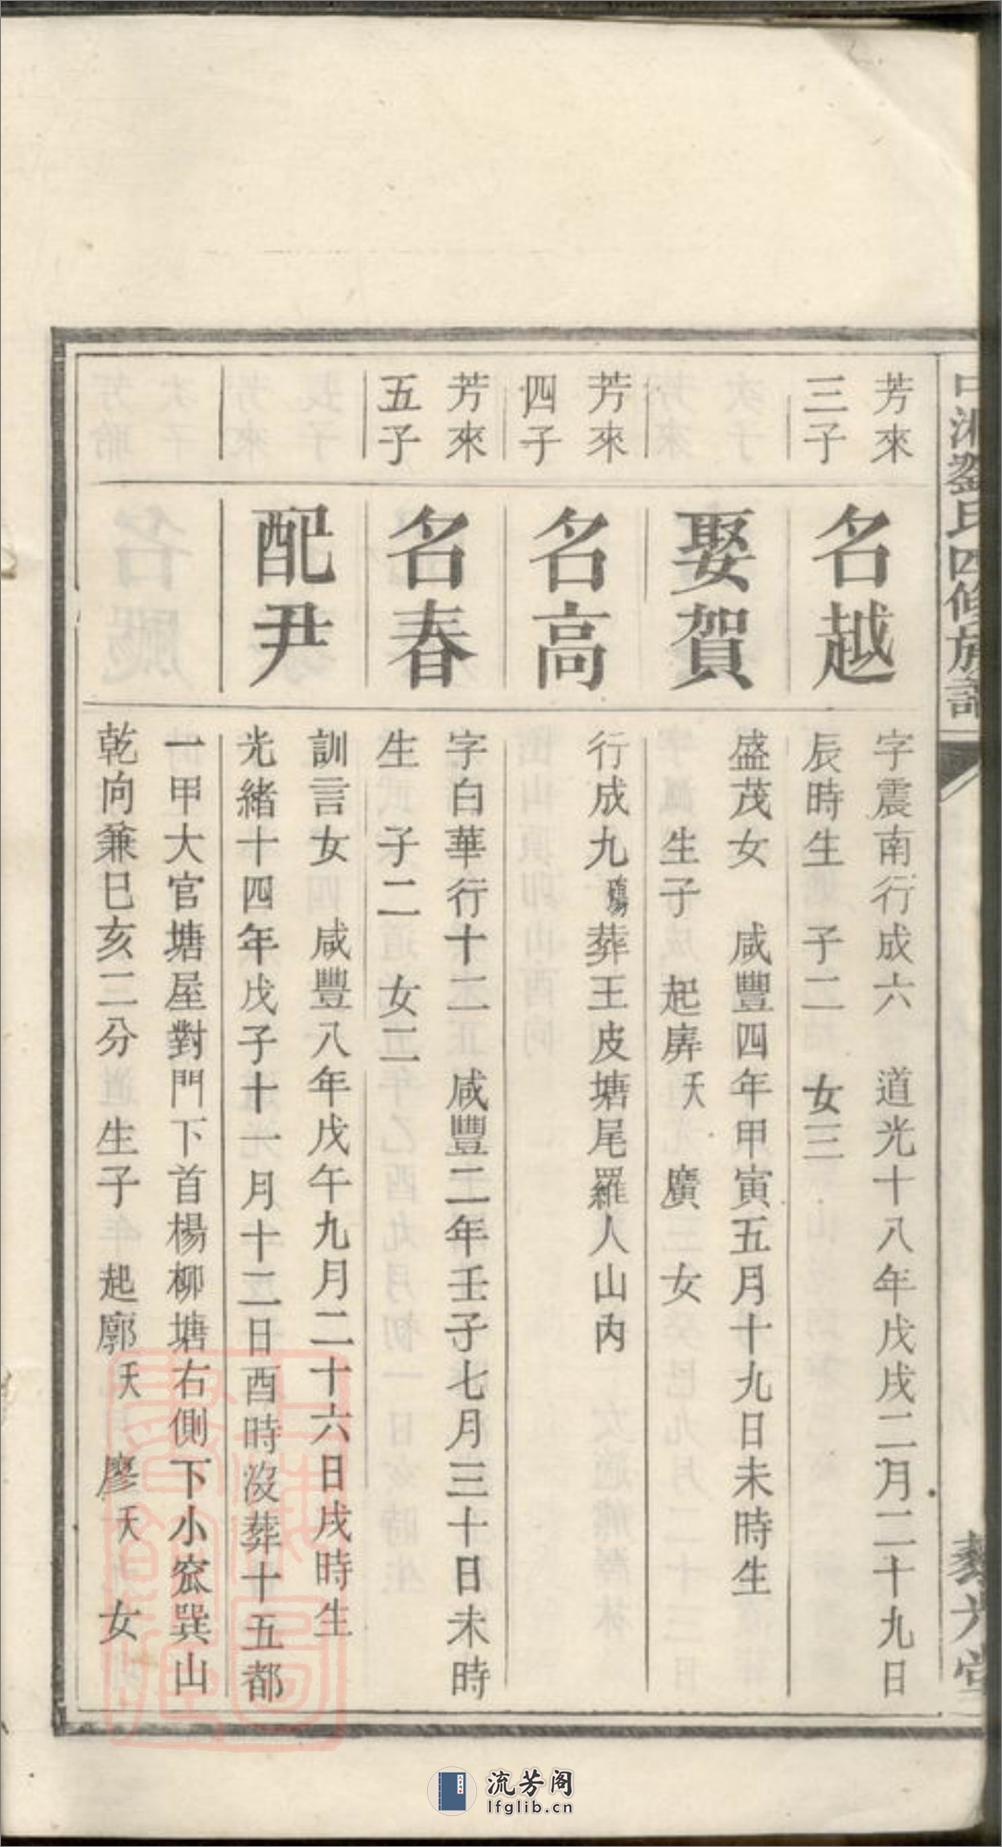 中湘劉氏四修族譜
藜光堂
芳來
三子
名越
字震南行成六 道光十八年戊戌二月二十九日
辰時生 子二 女三
娶賀
盛茂女 咸豐四年甲寅五月十九日未時生
生子 起犀 夭 廣 女
芳來
四子
名高
行成九 殤 葬王皮塘尾羅人山內
芳來
五子
名春
字白華行十二 咸豐二年壬子七月三十日未時
生 子二 女二
配尹
訓言女 咸豐八年戊午九月二十六日戌時生
光緒十四年戊子十一月十二日酉時沒葬十五都
一甲大官塘屋對門下首楊柳塘右側下小窊巽山
乾向兼巳亥二分 生子 起廓 夭 廖 夭 女
流芳阁
lfglib.cn